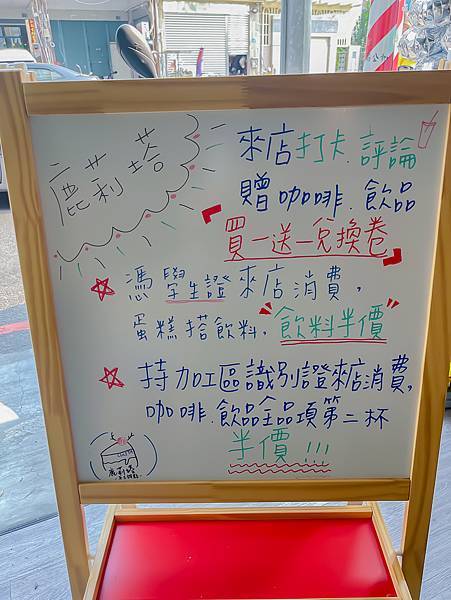 鹿莉塔
來店打卡.評論
贈咖啡.飲品
買一送一兌換卷
憑學生證來店消費,
蛋糕搭飲料,飲料半價
持加工區識別證來店消費,
咖啡.飲品全品項第二杯
半價!!!
鹿莉塔